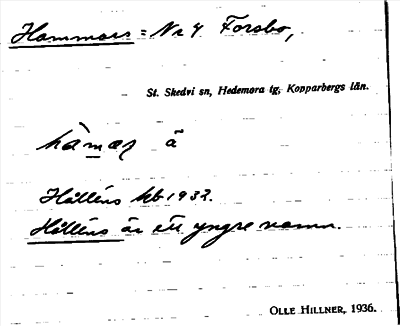 Hammars = Nr 4 Forsbo,
St. Skedvi sn, Hedemora tg, Kopparbergs län.
hàmaṣ ä
Hålléns kb 1932.
Hålléns är ett yngre namn.
OLLE HILLNER, 1936.